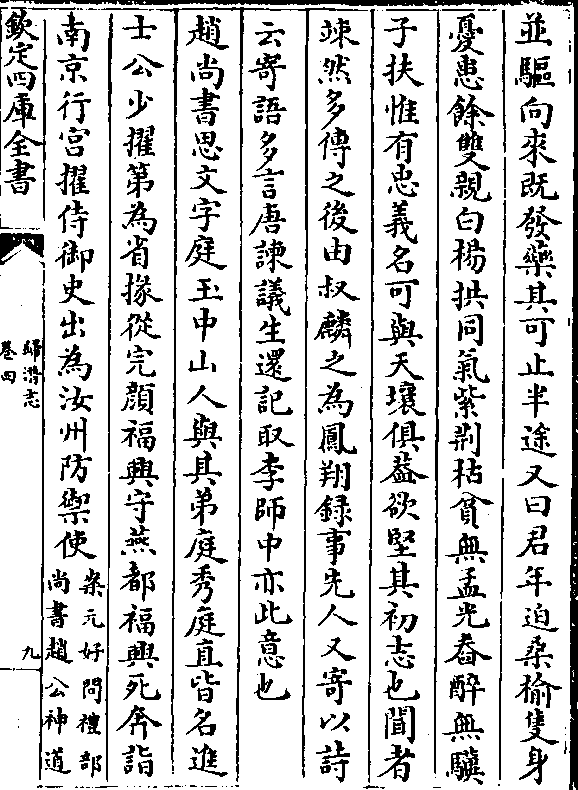 並驅向來既發藥其可止半途又曰君年迫桑榆隻身
憂患餘雙親白楊拱同氣紫荆枯貧無孟光舂醉無驥
子扶惟有忠義名可與天壤俱葢欲堅其初志也聞者
竦然多傳之後由叔麟之為鳳翔録事先人又寄以詩
云寄語多言唐諫議生還記取李師中亦此意也
趙尚書思文字庭玉中山人與其弟庭秀庭直皆名進
士公少擢第為省掾從完顔福興守燕都福興死奔詣
南京行宫擢侍御史出為汝州防禦使
案元好問禮部
尚書趙公神道
欽定四庫全書
歸潛志
卷四
九